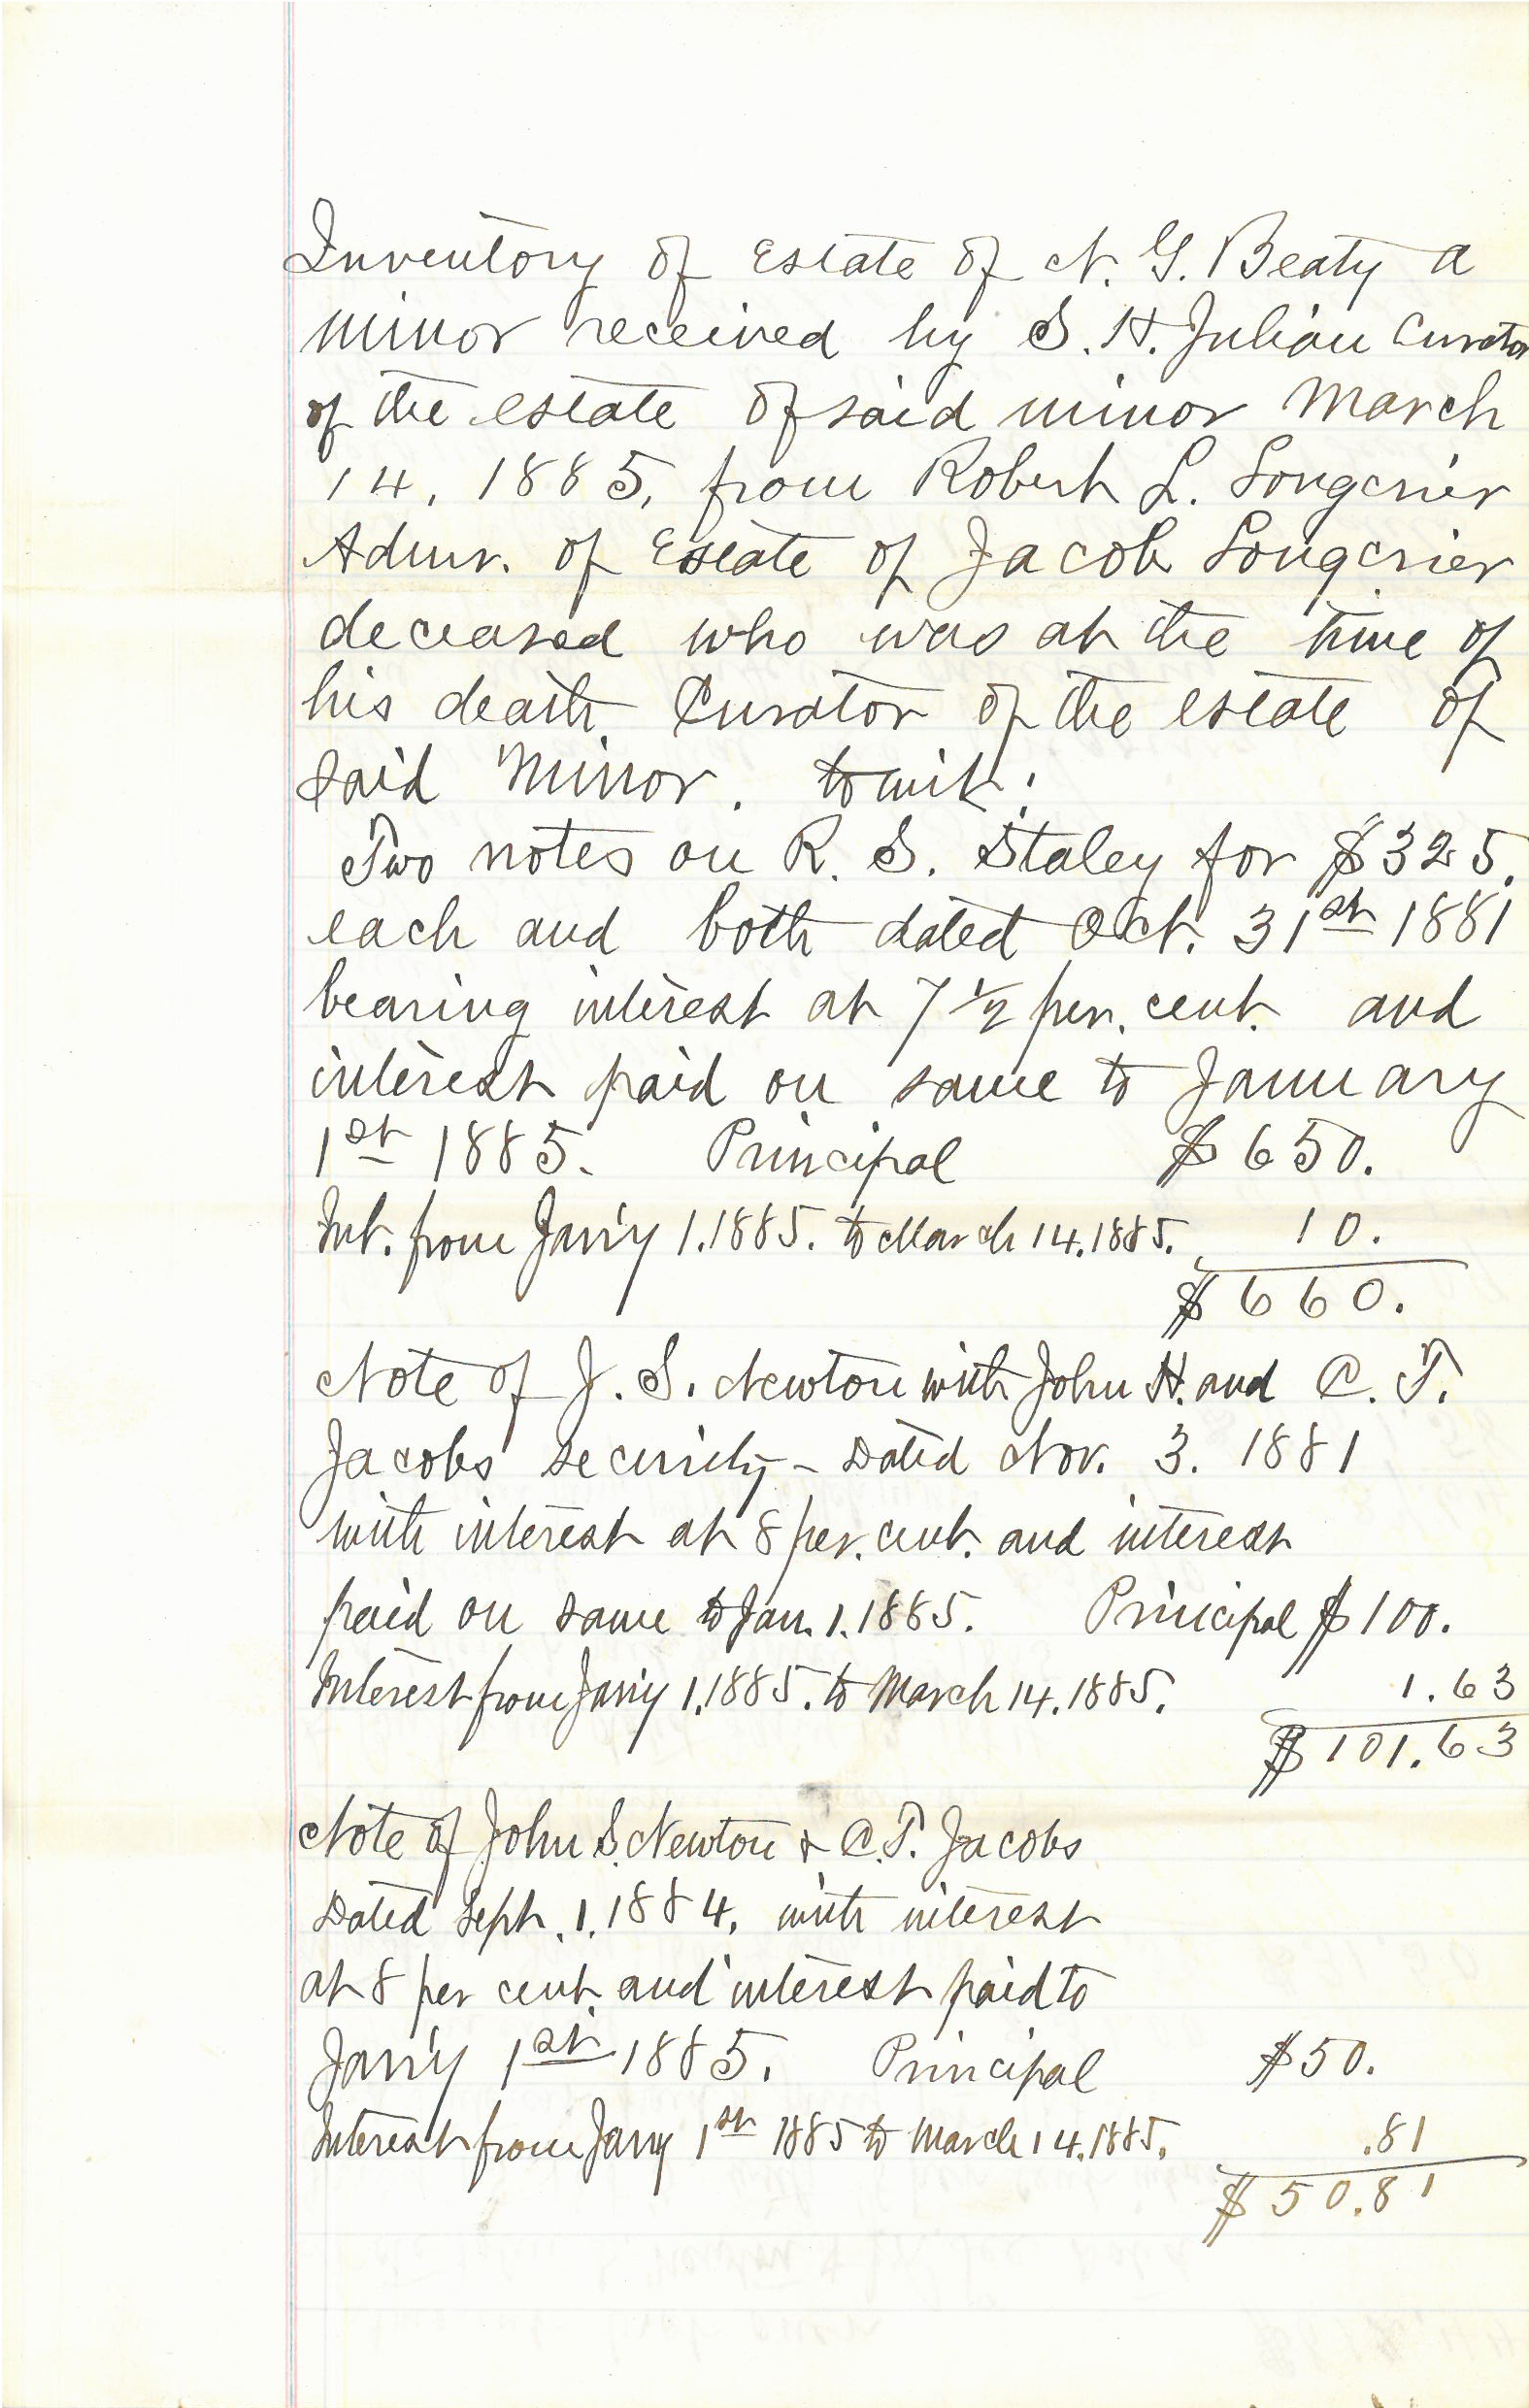 Inventory of Estate of N. G. Beaty a
minor received by S. H. Julian Curator
of the estate of said minor March
14, 1885, from Robert L. Longcrier
Admr. of Estate of Jacob Longcrier
deceased who was at the time of
his death Curator of the estate of
said Minor. towit:
Two notes on R. S. Staley for $325.
each and both dated Oct. 31st 1881
bearing interest at 7 1/2 per. cent. and
interest paid on same to January
1st 1885. Principal $650.
Int. from Jan'y 1. 1885. to March 14. 1885. 10.
$660.
Note of J. S. Newton with John H. and C. T.
Jacobs security - Dated Nov. 3. 1881
with interest at 8 per. cent. and interest
paid on same to Jan. 1. 1885. Principal $100.
Interest from Jan'y 1. 1885. to March 14. 1885. 1.63
$101.63
Note of John S. Newton & C. T. Jacobs
Dated Sept. 1. 1884. with interest
at 8 per cent. and interest paid to
Jan'y 1st 1885. Principal $50.
Interest from Jany 1st 1885 to March 14. 1885. .81
$50.81